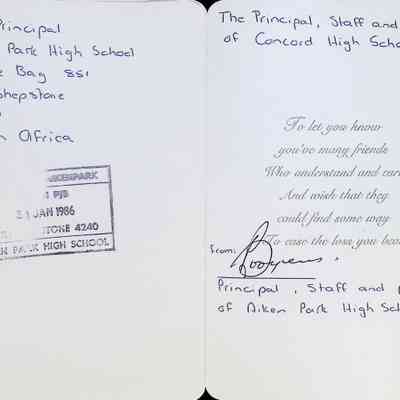 Principal
Park High School
Bag 851
hepstone
Africa
AIKENPARK
PJB
JAN 1986
STONE 4240
PARK HIGH SCHOOL
The Principal, Staff and
of Concord High Scho
To let you know
you've many friends
Who understand and car
And wish that they
could find some way
To ease the loss you bea
From:
Principal, Staff and
of Aiken Park High Sch